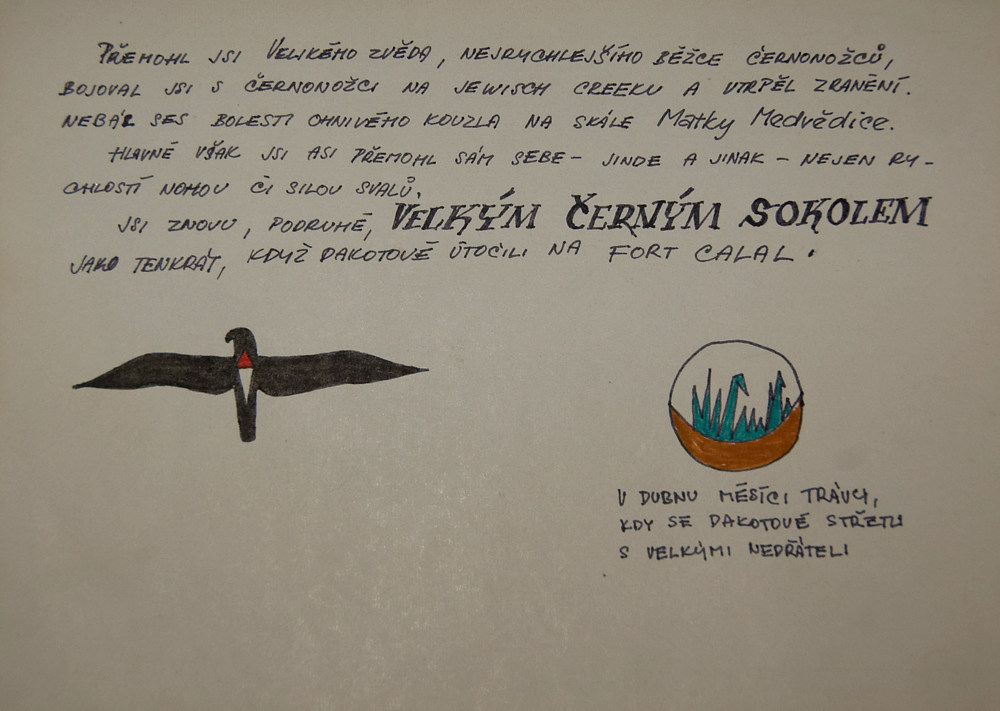 PŘEMOHL JSI VELIKÉHO ZVĚDA, NEJRYCHLEJŠÍHO BĚŽCE ČERNONOŽCŮ,
BOJOVAL JSI S ČERNONOŽCI NA JEWISCH CREEKU A UTRPĚL ZRANĚNÍ.
NEBÁL SES BOLESTI OHNIVÉHO KOUZLA NA SKÁLE Matky Medvědice.
HLAVNĚ VŠAK JSI ASI PŘEMOHL SÁM SEBE - JINDE A JINAK - NEJEN RY-
CHLOSTÍ NOHOU ČI SILOU SVALŮ.
JSI ZNOVU, PODRUHÉ, VELKÝM ČERNÝM SOKOLEM
JAKO TENKRÁT, KDYŽ DAKOTOVÉ ÚTOČILI NA FORT CALAL.
V DUBNU MĚSÍCI TRÁVY,
KDY SE DAKOTOVÉ STŘETLI
S VELKÝMI NEPŘÁTELI